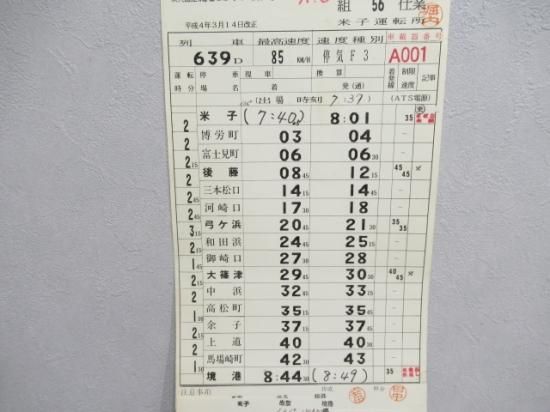 組 56 仕業
平成4年3月14日改正
米子運転所
列車 最高速度 速度種別 車載器番号
639D 85KM/H 停気F3 A001
運転 停車 現車 換算 着発線 制限速度 記事
時分 場名 着 発(通)
出場時刻 7:39 (ATS電源)
米子 (7:40) 8:01 35
2 博労町 03 04
2 富士見町 06 06 30
2 15 後藤 08 45 12 15 45 45
2 三本松口 14 15 14 45
2 河崎口 17 18
2 弓ケ浜 20 45 21 30 35 35
3 15 和田浜 24 45 25 15
2 御崎口 27 30 28
大篠津 29 45 30 30 40 45
2 中浜 32 45 33 15
2 高松町 35 15 35 45
余子 37 15 37 45
2 上道 40 40 30
2 馬場崎町 42 30 43
境港 8:44 30 (8:49) 35
注意事項